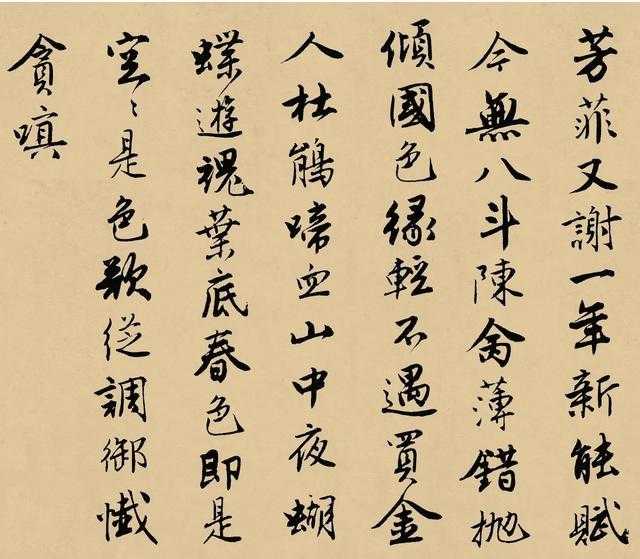 芳菲又謝一年新能賦
今無八斗陳命薄錯抛
傾國色緣輕不遇買金
人杜鵑啼血山中夜蝴
蝶遊魂葉底春色即是
空〻是色欲從調御懺
貪嗔